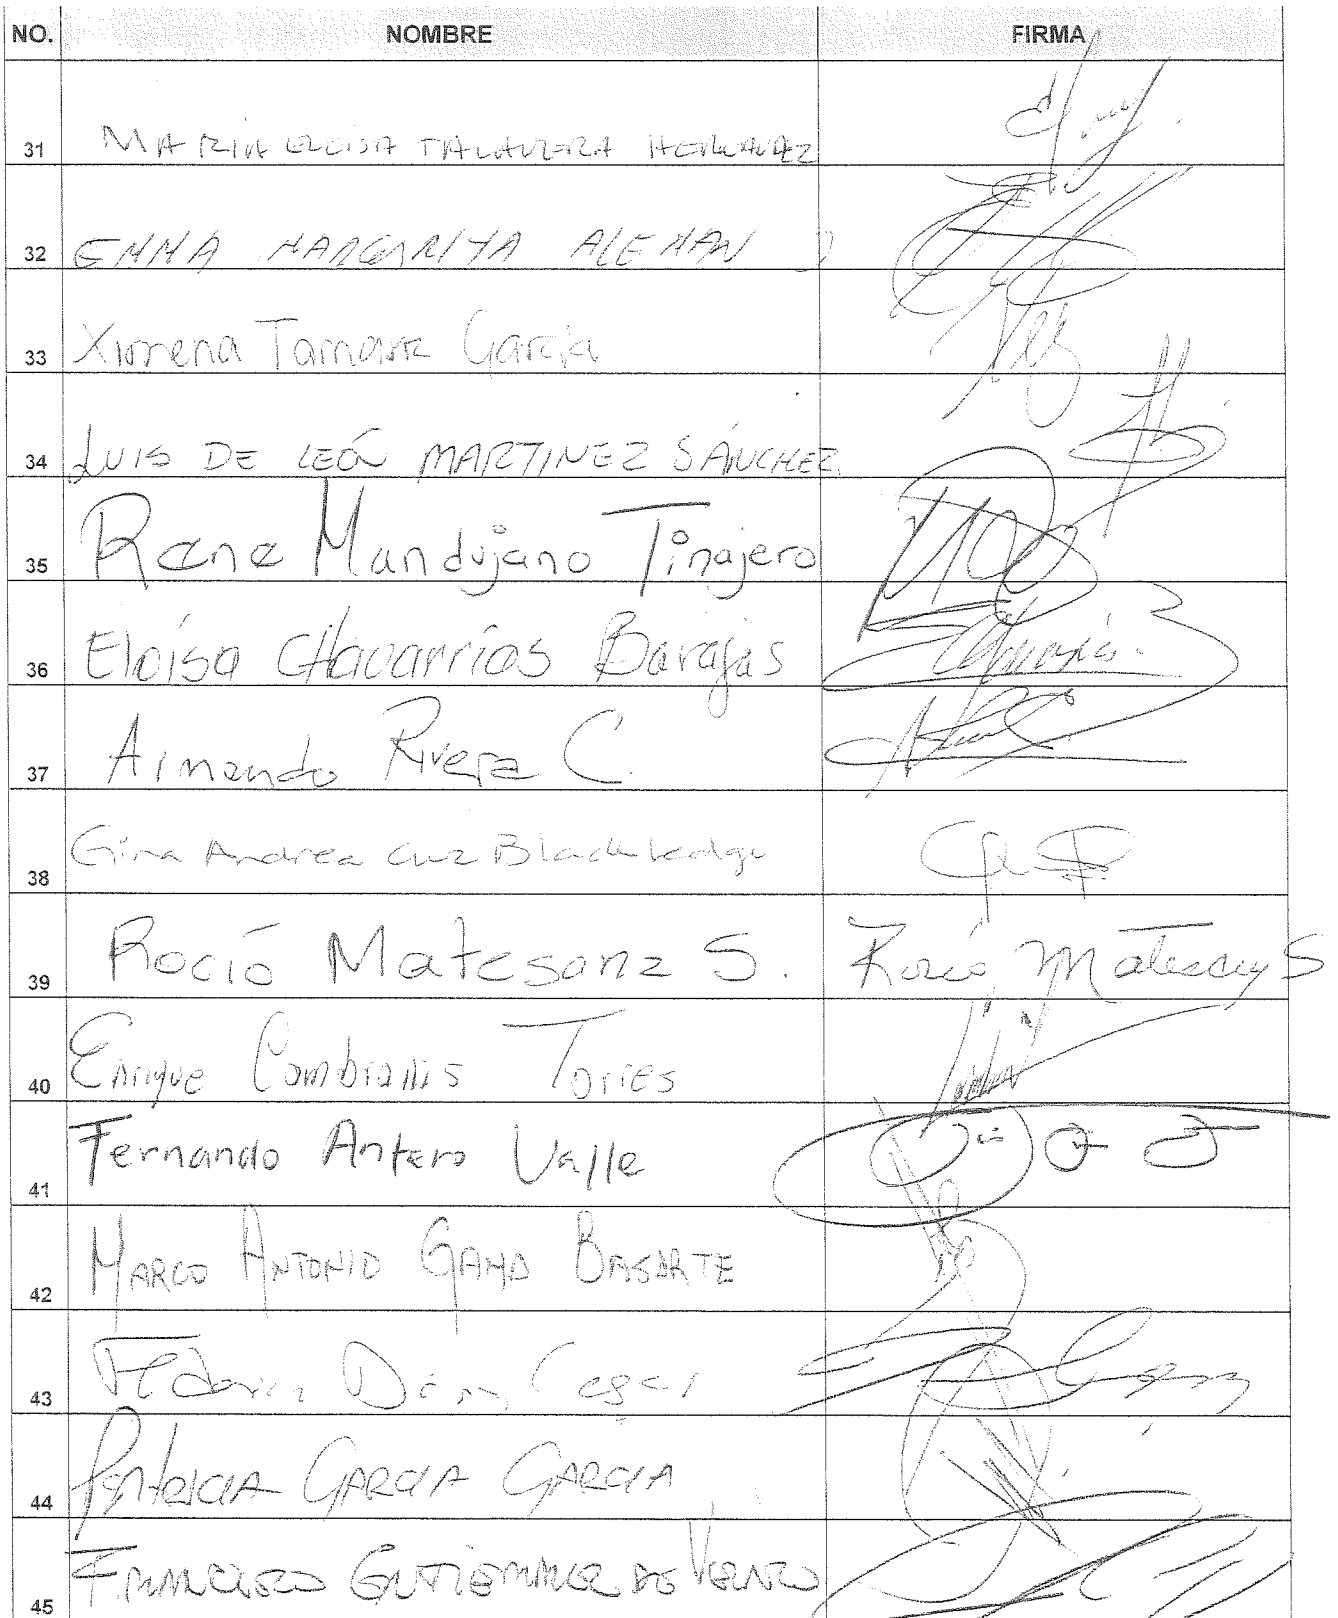 NO. NOMBRE FIRMA
31 MARIA ELOISA TALAVERA HERNANDEZ
32 EMMA MARGARITA ALEMAN
33 Ximena Tamariz García
34 LUIS DE LEÓN MARTINEZ SÁNCHEZ
35 Rene Mandujano Tinajero
36 Eloísa Chavarrías Barajas
37 Armando Rivera C.
38 Gina Andrea Cruz Blackledge
39 Roció Matesanz S. Rocío Matesanz S
40 Enrique Cambranis Torres
41 Fernando Antero Valle
42 MARCO ANTONIO GAMA BASARTE
43 Federico
44 PATRICIA GARCIA GARCIA
45 FRANCISCO GUTIERREZ DE VELASCO